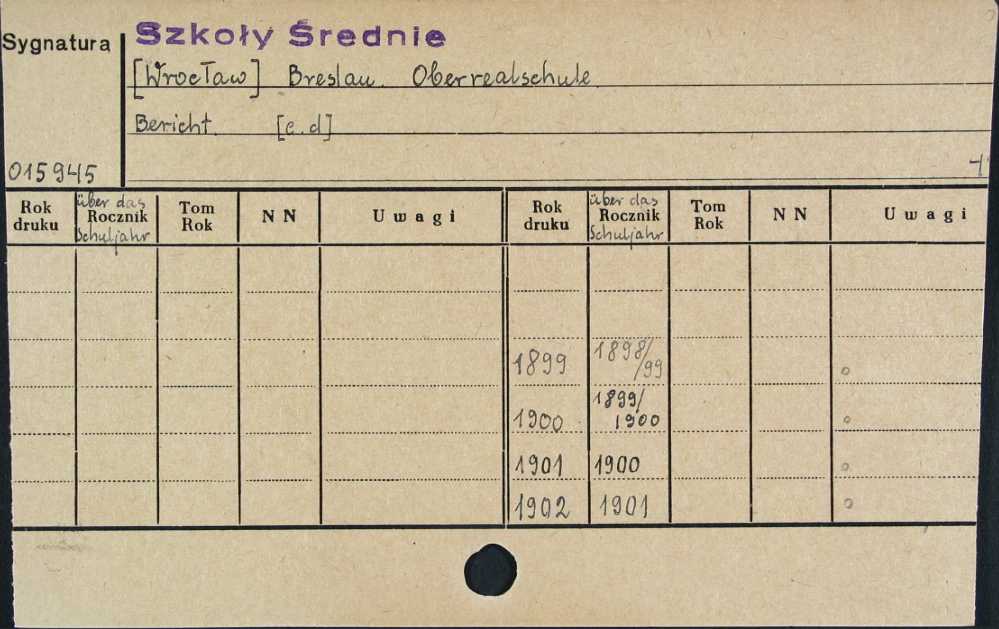 Szkoły Średnie
Sygnatura
[Wrocław] Breslau. Oberrealschule
Bericht. [c.d]
015945
Rok druku
über das Rocznik Schuljahr
Tom Rok
NN
Uwagi
Rok druku
über das Rocznik Schuljahr
Tom Rok
NN
Uwagi
1899 1898/99 o
1900 1899/1900 o
1901 1900 o
1902 1901 o